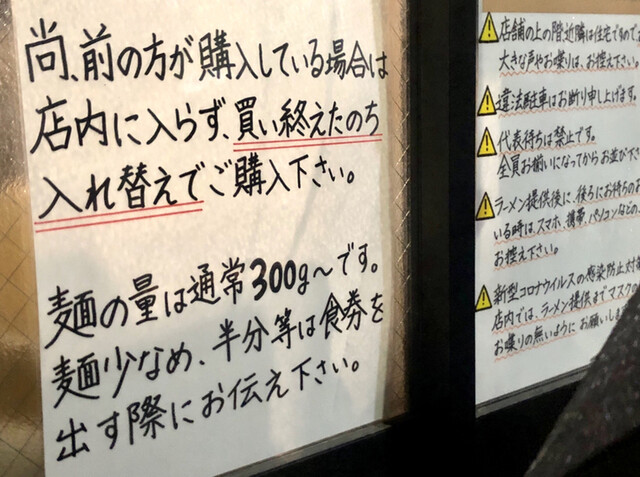 尚、前の方が購入している場合は
店内に入らず、買い終えたのち
入れ替えでご購入下さい。
麺の量は通常300g〜です。
麺少なめ、半分等は食券を
出す際にお伝え下さい。
店舗の上の階、近隣は住宅ですので
大きな声やお喋りは、お控え下さい。
違法駐車はお断り申し上げます。
代表待ちは禁止です。
全員お揃いになってからお並び下
ラーメン提供後に、後ろにお待ちの
いる時は、スマホ、携帯、パソコンなどの
お控え下さい。
新型コロナウイルスの感染防止対
店内では、ラーメン提供までマスクの
お喋りの無いようにお願いし